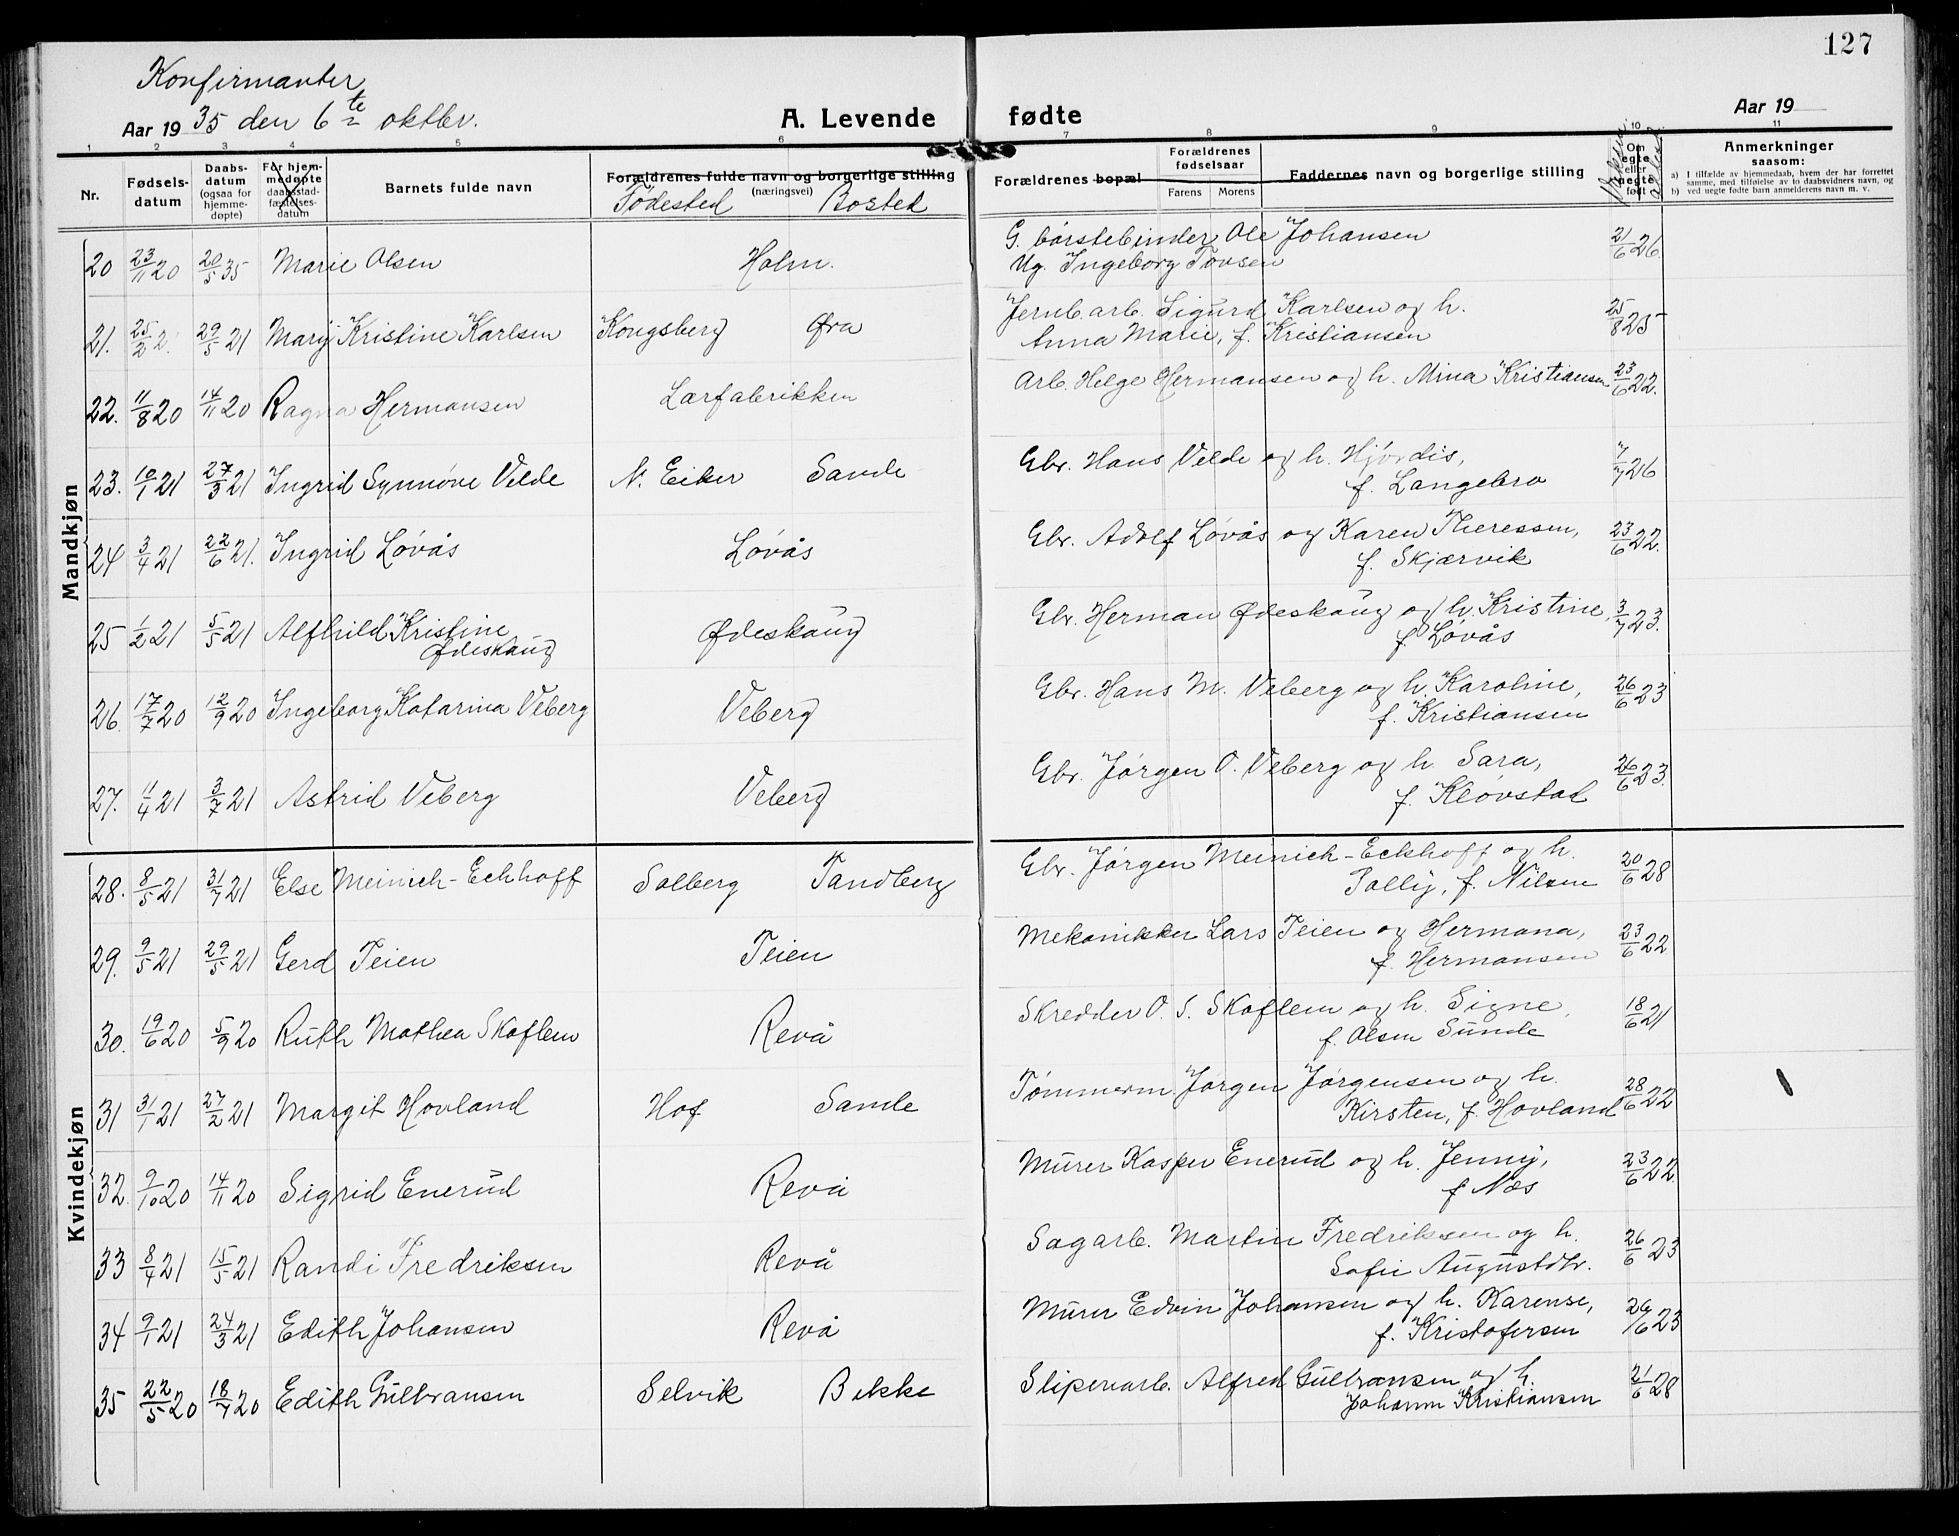 127
Konfirmanter
Aar 1935 den 6te oktbr.
A. Levende fødte
Aar 19
1 2 3 4 5 6 7 8 9 10 11
Nr.
Fødsels-datum
Daabs-datum (ogsaa for hjemme-døpte)
For hjem-medøpte daabsstad-fæstelses-datum
Barnets fulde navn
Forældrenes fulde navn og borgerlige stilling (næringsvei)
Fødested Bosted
Forældrenes bopæl
Forældrenes fødselsaar
Farens Morens
Faddernes navn og borgerlige stilling
Om egte eller uegte født
Anmerkninger saasom:
a) I tilfælde av hjemmedaab, hvem der har forrettet samme, med tilføielse av to daabsvidners navn, og
b) ved uegte født barn anmelderens navn m. v.
Mandkjøn
20 23/11 20 20/5 35 Marie Olsen Holm. G. børstebinder Ole Johansen 21/6 26.
Ug. Ingeborg Tovsen
21. 25/2 2. 29/5 21 Mary Kristine Karlsen Kongsberg Øra Jernb.arb. Sigurd Karlsen og h. 25/8 25
Anna Marie, f. Kristiansen
22. 11/8 20 14/11 20 Ragna Hermansen Lærfabrikken Arb. Helge Hermansen og h. Mina Kristiansen 23/6 22.
23. 10/1 21 27/3 21 Ingrid Synnøve Velde N. Eiker Sande Gbr. Hans Velde og h. Hjørdis, 7/7 26
f. Langebro
24 3/4 21 22/6 21. Ingrid Løvås Løvås Gbr. Adolf Løvås og Karen Theressen, 23/6 22.
f. Skjærvik
25 1/2 21 5/5 21 Alfhild Kristine Ødeskaug Ødeskaug Gbr. Herman Ødeskaug og h. Kristine, 3/7 23.
f. Løvås
26. 17/7 20 12/9 20 Ingeborg Katarina Veberg Veberg Gbr. Hans M. Veberg og h. Karoline, 26/6 23
f. Kristiansen
27. 11/4 21 3/7 21 Astrid Veberg Veberg Gbr. Jørgen O. Veberg og h. Sara, 26/6 23.
f. Kløvstad
Kvindekjøn
28. 8/5 21 31/7 21 Else Meinich-Eckhoff Solberg Tandberg Gbr. Jørgen Meinich-Eckhoff og h. 20/6 28
Solly, f. Nilsen
29. 9/5 21 29/5 21 Gerd Teien Teien Mekanikker Lars Teien og Hermana, 23/6 22
f. Hermansen
30. 19/6 20 5/9 20 Ruth Mathea Skoflem Revå Skredder O. S. Skoflem og h. Signe, 18/6 21
f. Olsen Sunde
31 31/1 21 27/2 21 Margit Hovland Hof Sande Tømmerm. Jørgen Jørgensen og h. 28/6 22
Kirsten, f. Hovland
32. 9/10 20 14/11 20 Sigrid Enerud Revå Murer Kasper Enerud og h. Jenny, 23/6 22
f Næs
33 8/4 21 15/5 21 Randi Fredriksen Revå Sagarb. Martin Fredriksen og h. 26/6 23
Sofie Augustdtr.
34 9/1 21 24/3 21 Edith Johansen Revå Murer Edvin Johansen og h. Karense, 26/6 23
f. Kristofersen
35 22/5 20 18/7 20 Edith Gulbransen Selvik Bekke Sliperiarb. Alfred Gulbransen og h. 21/6 28
Johanne Kristiansen